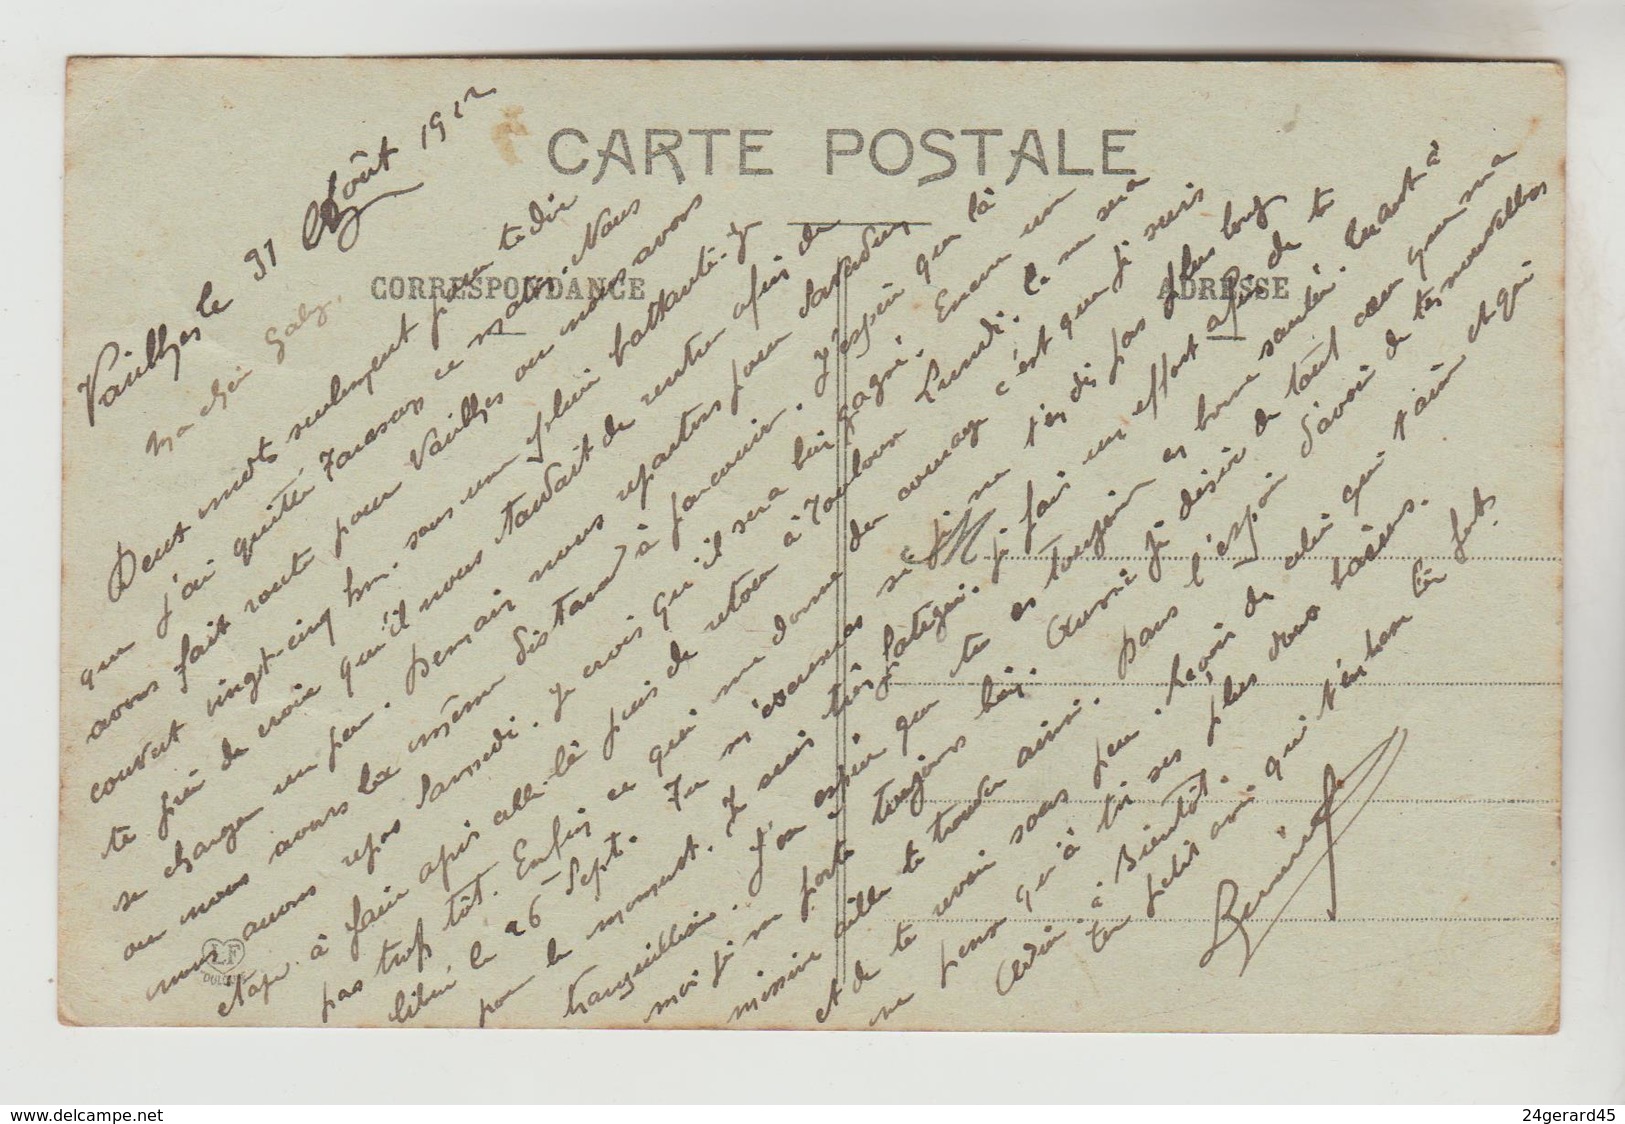 CARTE POSTALE
CORRESPONDANCE
ADRESSE
Vailhes le 31 Août 1912
Ma chère Gaby.
Deux mots seulement pour te dire
que j'ai quitté ce matin. Nous
avons fait route pour Vailhes ou nous avons
couvert vingt-cinq km. sous une pluie battante. Je
te prie de croire qu'il nous tardait de rentrer afin de
se changer un peu. Demain nous repartons pour
ou nous avons la même distance à parcourir. J'espère que là
nous aurons repos samedi. Je crois qu'il sera bien gagné. Encore un
étape à faire après celle-là puis de retour à Toulouse Lundi. Ce ne sera
pas trop tôt. Enfin ce qui me donne du courage c'est que je suis
libéré le 26 Sept. Tu m'excuseras si je ne t'en dis pas plus long
pour le moment. Je suis très fatigué. Je fais un effort afin de te
tranquilliser. J'ose espérer que tu es toujours en bonne santé. Quant à
moi je me porte toujours bien. Aussi je désire de tout cœur que ma
missive aille te trouver ainsi. Dans l'espoir d'avoir de tes nouvelles
et de te revoir sous peu. Reçois de celui qui t'aime et qui
ne pense qu'à toi ses plus doux baisers.
Adieu à Bientôt.
Ton petit ami qui t'en ... bien fort.
LF